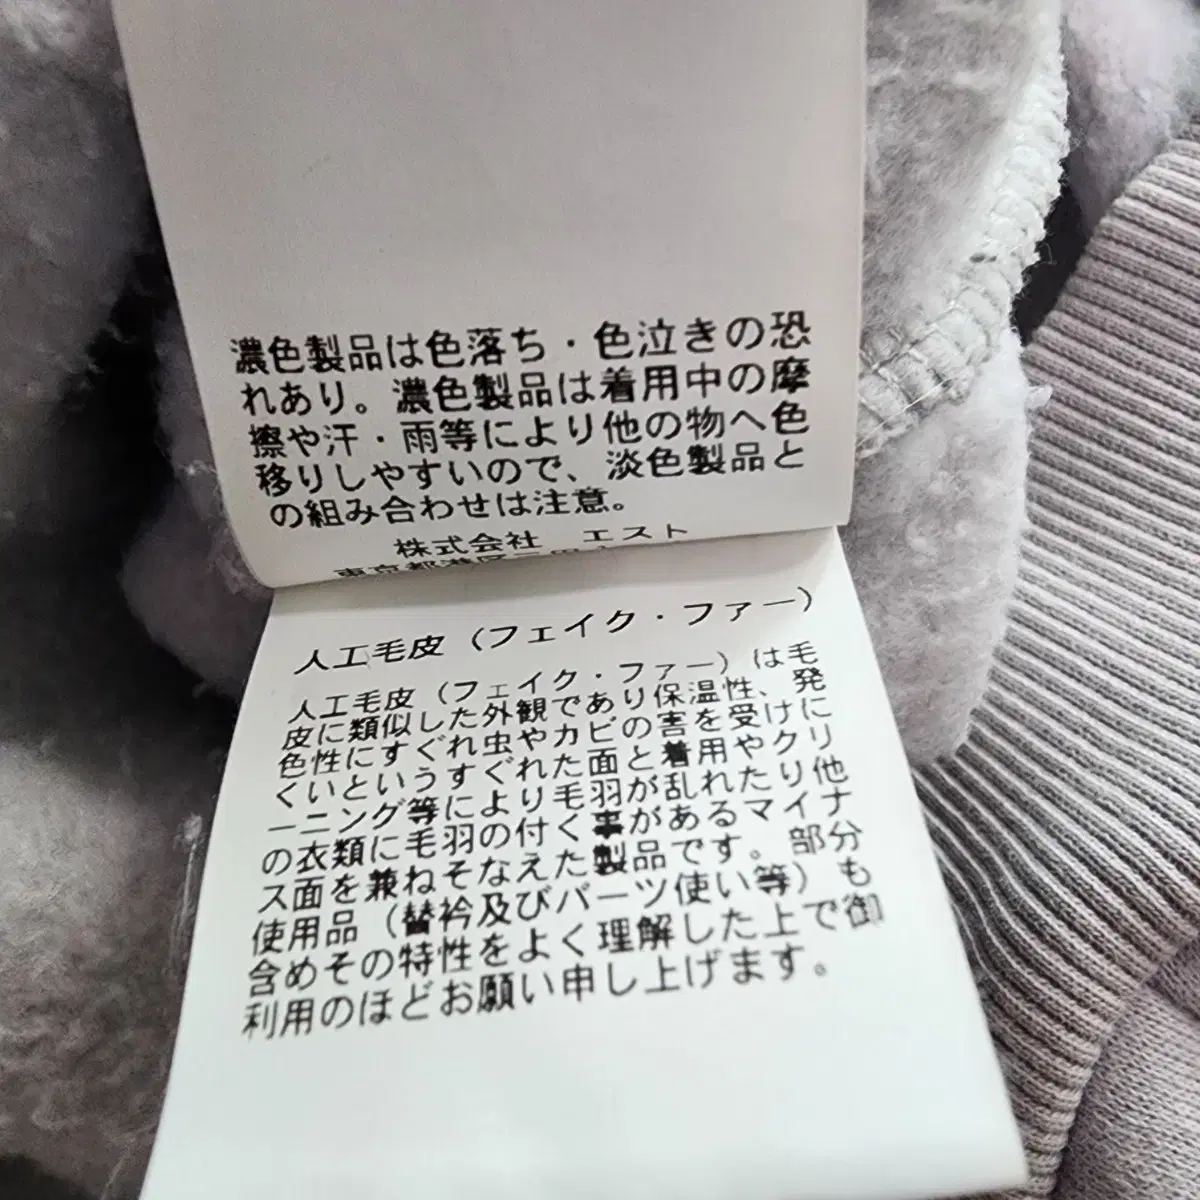 濃色製品は色落ち・色泣きの恐
れあり。濃色製品は着用中の摩
擦や汗・雨等により他の物へ色
移りしやすいので、淡色製品と
の組み合わせは注意。
株式会社 エスト
東京都港区
人工毛皮（フェイク・ファー）
人工毛皮（フェイク・ファー）は毛
皮に類似した外観であり保温性、発
色性にすぐれ虫やカビの害を受けに
くいというすぐれた面と着用やクリ
ーニング等により毛羽が乱れたり他
の衣類に毛羽の付く事があるマイナ
ス面を兼ねそなえた製品です。部分
使用品（替衿及びパーツ使い等）も
含めその特性をよく理解した上で御
利用のほどお願い申し上げます。